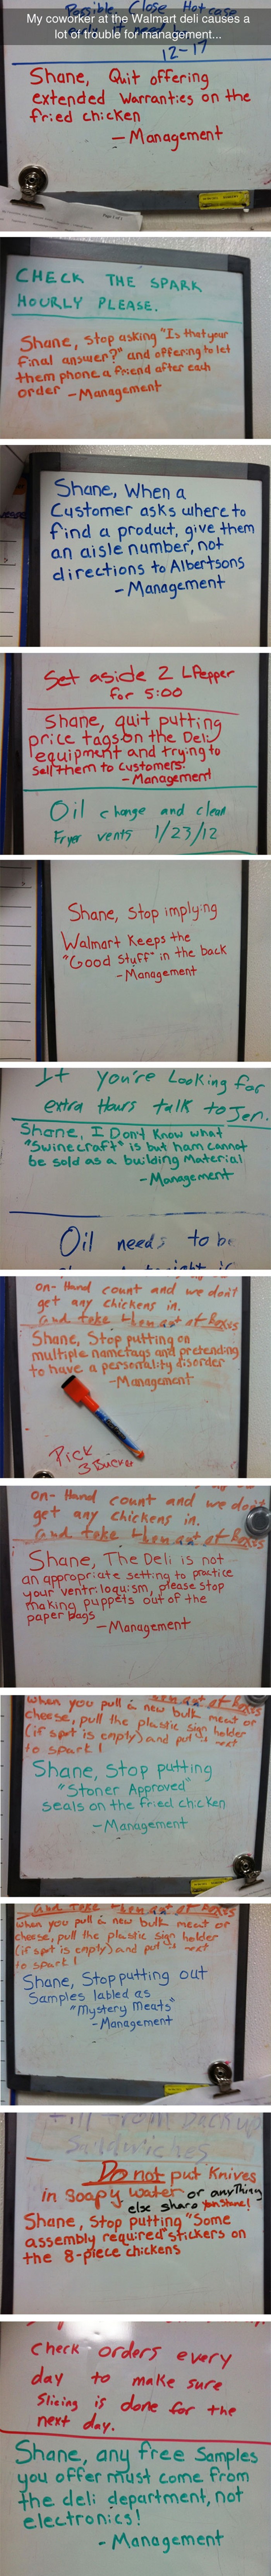 My coworker at the Walmart deli causes a
lot of trouble for management...
Possible. Close Hot case
12-17
Shane, Quit offering
extended Warranties on the
fried chicken
- Management
CHECK THE SPARK
HOURLY PLEASE.
Shane, Stop asking "Is that your
final answer?" and offering to let
them phone a friend after each
order - Management
Shane, When a
Customer asks where to
find a product, give them
an aisle number, not
directions to Albertsons
- Management
Set aside 2 L Pepper
for 5:00
Shane, quit putting
price tags on the Deli
equipment and trying to
sell them to customers.
- Management
Oil change and clean
Fryer vents 1/23/12
Shane, Stop implying
Walmart Keeps the
"Good Stuff" in the back
- Management
If you're Looking for
extra Hours talk to Jen.
Shane, I Don't Know what
"Swinecraft" is but ham cannot
be sold as a building Material
- Management
Oil needs to be
on-Hand count and we don't
get any chickens in.
and take them out of Boxes
Shane, Stop putting on
multiple nametags and pretending
to have a personality disorder
- Management
Pick
3 Bucket
on-Hand count and we don't
get any chickens in.
and take them out of Boxes
Shane, The Deli is not
an appropriate setting to practice
your ventriloquism, please stop
making puppets out of the
paper bags
- Management
them out of Boxes
when you pull a new bulk meat or
cheese, pull the plastic sign holder
(if spot is empty) and put it next
to spark!
Shane, Stop putting
"Stoner Approved"
seals on the fried chicken
- Management
and take them out of Boxes
when you pull a new bulk meat or
cheese, pull the plastic sign holder
(if spot is empty) and put it next
to spark!
Shane, Stop putting out
Samples labled as
"Mystery Meats"
- Management
Sandwiches
Do not put Knives
in soapy water or anything
else sharp
Shane, Stop putting "Some
assembly required" stickers on
the 8-piece chickens
Check orders every
day to make sure
Slicing is done for the
next day.
Shane, any free Samples
you offer must come from
the deli department, not
electronics!
- Management